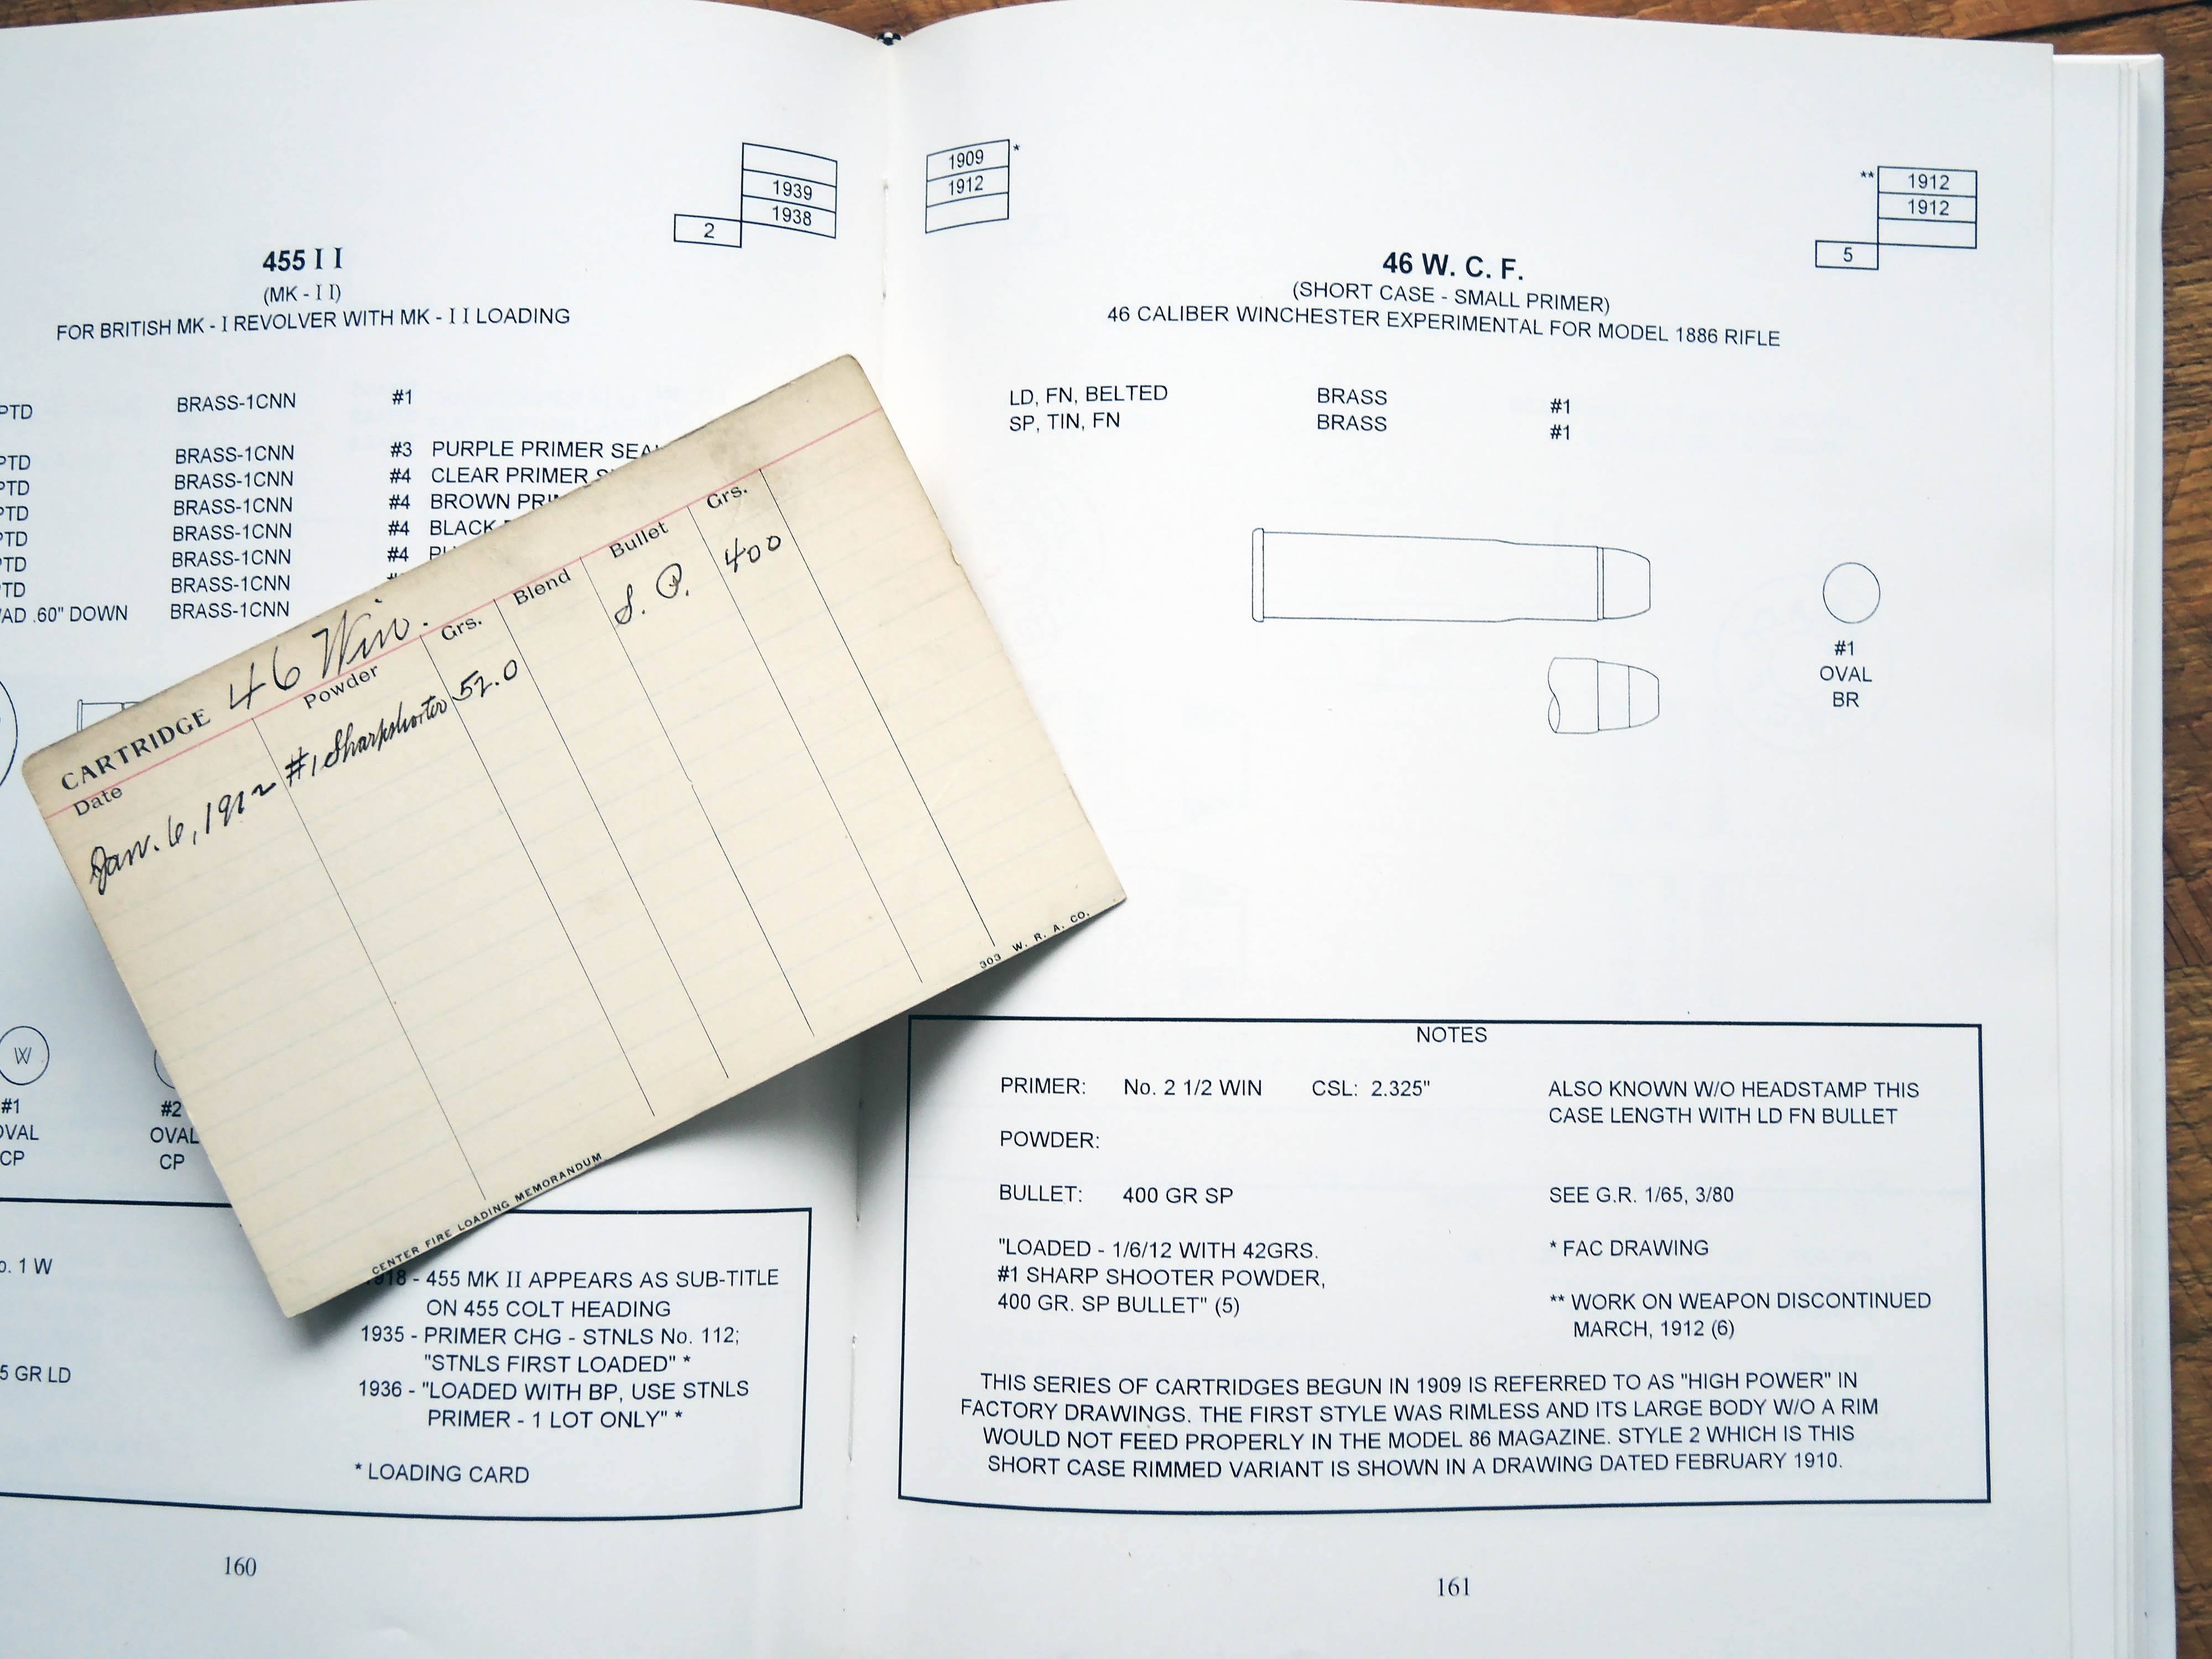 1939
1938
2
455 II
(MK - II)
FOR BRITISH MK - I REVOLVER WITH MK - II LOADING
PTD BRASS-1CNN #1
PTD BRASS-1CNN #3 PURPLE PRIMER
PTD BRASS-1CNN #4 CLEAR PRIMER
PTD BRASS-1CNN #4 BROWN
PTD BRASS-1CNN #4 BLACK
PTD BRASS-1CNN #4
PTD BRASS-1CNN
.60" DOWN BRASS-1CNN
W
#1 #2
OVAL OVAL
CP CP
1 W
GR LD
1918 - 455 MK II APPEARS AS SUB-TITLE
ON 455 COLT HEADING
1935 - PRIMER CHG - STNLS No. 112;
"STNLS FIRST LOADED" *
1936 - "LOADED WITH BP, USE STNLS
PRIMER - 1 LOT ONLY" *
* LOADING CARD
160
CARTRIDGE 46 Win.
Date Powder Grs. Blend Bullet Grs.
Jan. 6, 1912 #1 Sharpshooter 52.0 S. P. 400
CENTER FIRE LOADING MEMORANDUM 303 W. R. A. CO.
1909 *
1912
** 1912
1912
5
46 W. C. F.
(SHORT CASE - SMALL PRIMER)
46 CALIBER WINCHESTER EXPERIMENTAL FOR MODEL 1886 RIFLE
LD, FN, BELTED BRASS #1
SP, TIN, FN BRASS #1
#1
OVAL
BR
NOTES
PRIMER: No. 2 1/2 WIN CSL: 2.325"
POWDER:
BULLET: 400 GR SP
"LOADED - 1/6/12 WITH 42GRS.
#1 SHARP SHOOTER POWDER,
400 GR. SP BULLET" (5)
ALSO KNOWN W/O HEADSTAMP THIS
CASE LENGTH WITH LD FN BULLET
SEE G.R. 1/65, 3/80
* FAC DRAWING
** WORK ON WEAPON DISCONTINUED
MARCH, 1912 (6)
THIS SERIES OF CARTRIDGES BEGUN IN 1909 IS REFERRED TO AS "HIGH POWER" IN
FACTORY DRAWINGS. THE FIRST STYLE WAS RIMLESS AND ITS LARGE BODY W/O A RIM
WOULD NOT FEED PROPERLY IN THE MODEL 86 MAGAZINE. STYLE 2 WHICH IS THIS
SHORT CASE RIMMED VARIANT IS SHOWN IN A DRAWING DATED FEBRUARY 1910.
161